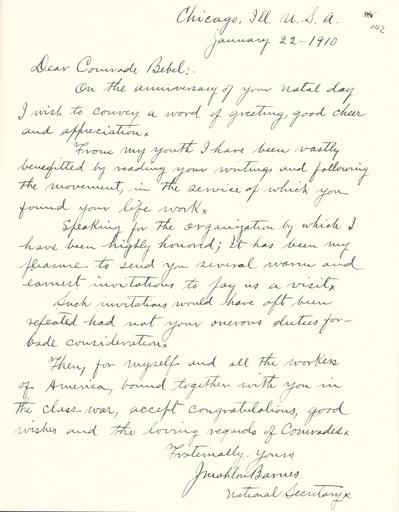 Chicago, Ill. U. S. A.
142
January 22-1910
Dear Comrade Bebel:-
On the anniversary of your natal day
I wish to convey a word of greeting, good cheer
and appreciation.
From my youth I have been vastly
benefitted by reading your writings and following
the movement, in the service of which you
found your life work.
Speaking for the organization by which I
have been highly honored; It has been my
pleasure to send you several warm and
earnest invitations to pay us a visit.
Such invitations would have oft been
repeated had not your onerous duties for-
bade consideration.
Then, for myself and all the workers
of America, bound together with you in
the class war, accept congratulations, good
wishes and the loving regards of Comrades.
Fraternally Yours
J Mahlon Barnes
National Secretary